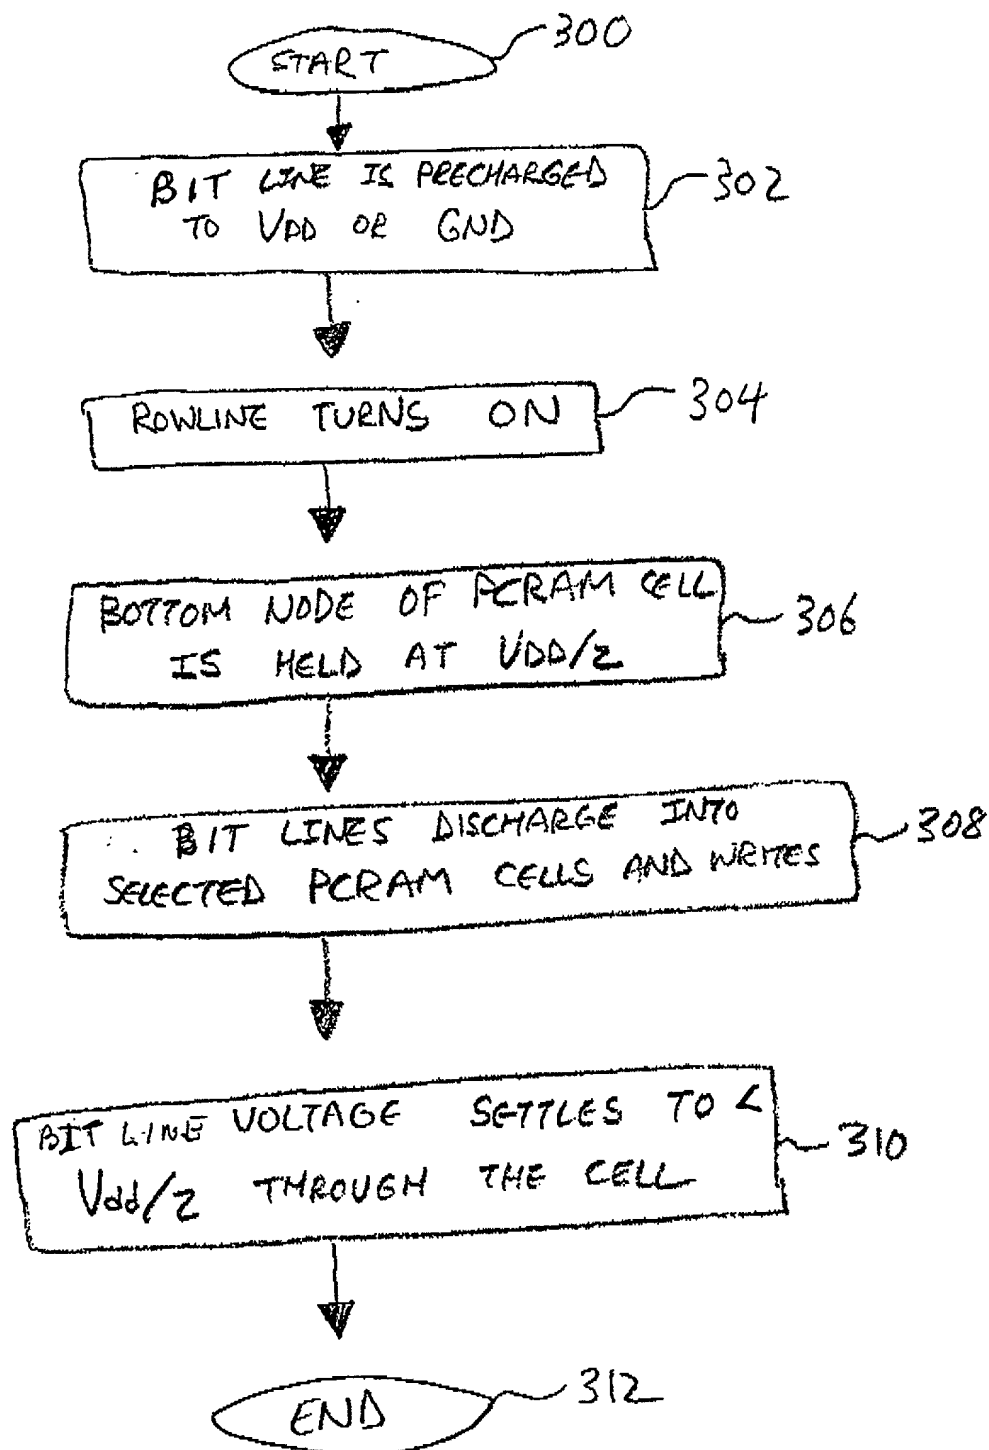 START
300
BIT LINE IS PRECHARGED
TO VDD OR GND
302
ROWLINE TURNS ON
304
BOTTOM NODE OF PCRAM CELL
IS HELD AT VDD/2
306
BIT LINES DISCHARGE INTO
SELECTED PCRAM CELLS AND WRITES
308
BIT LINE VOLTAGE SETTLES TO <
Vdd/2 THROUGH THE CELL
310
END
312